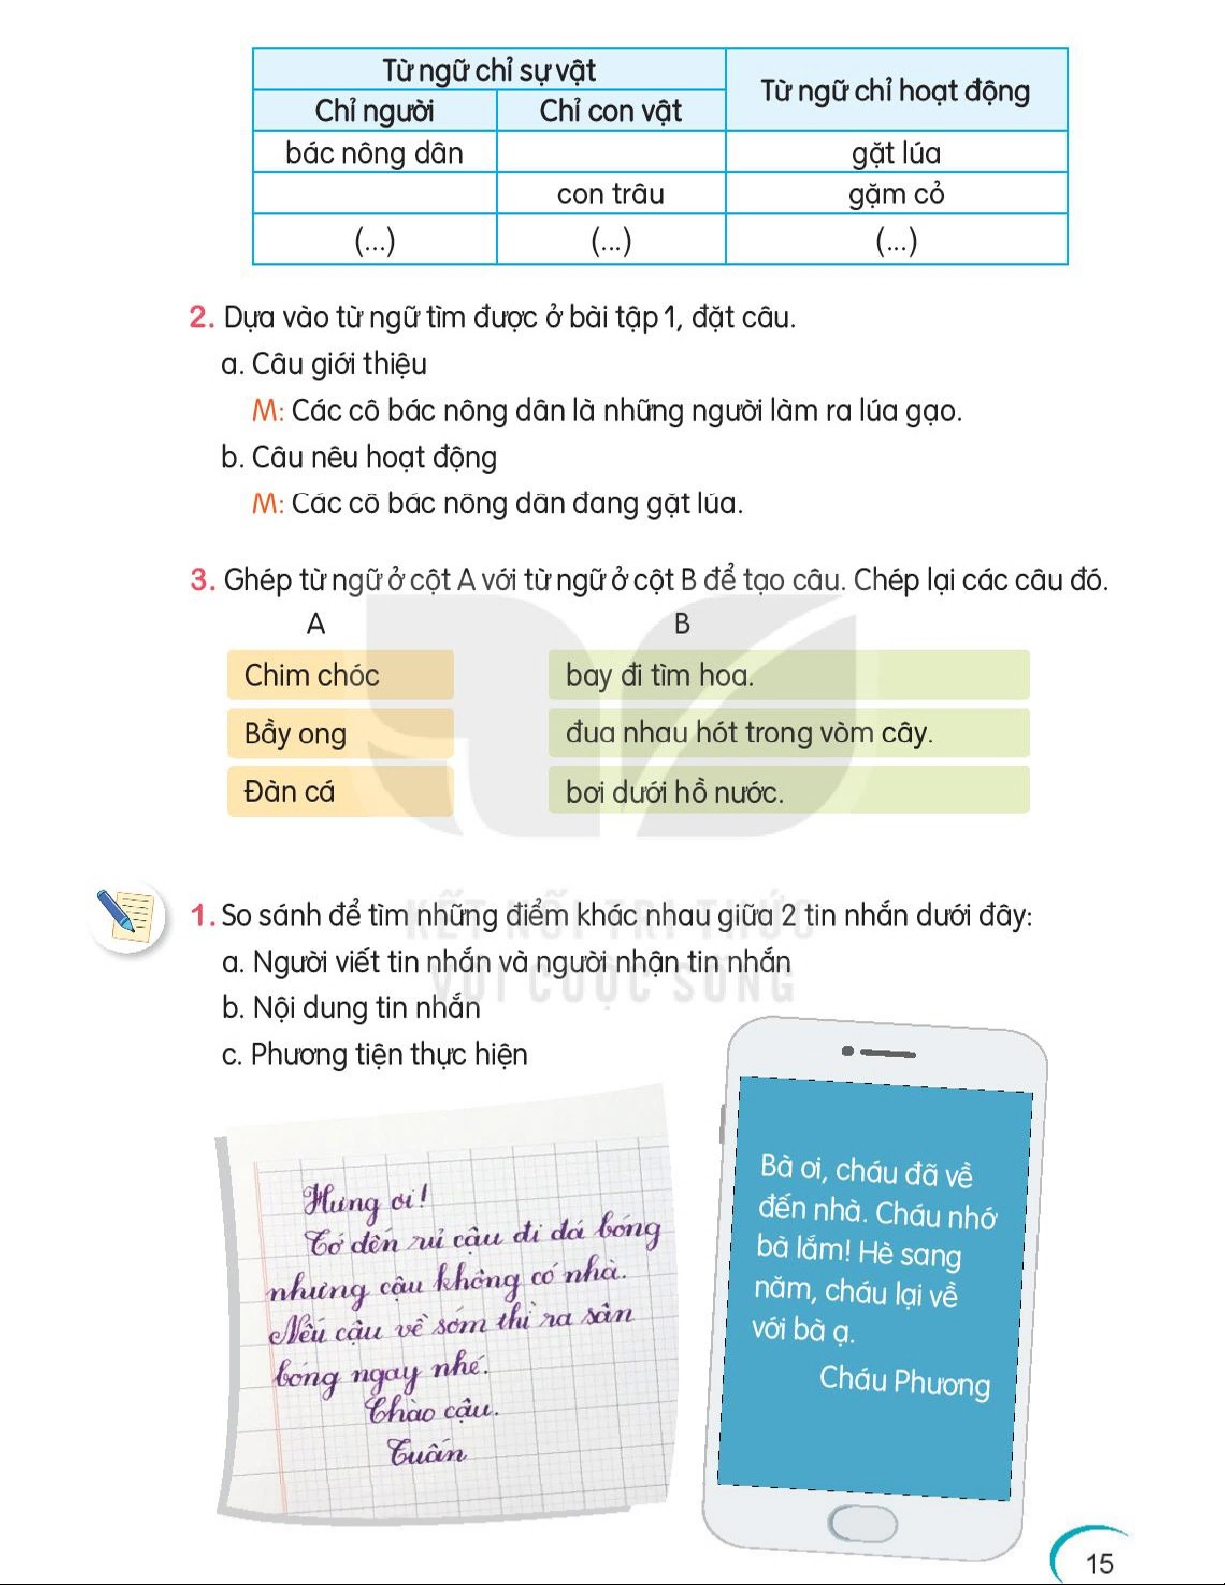 Từ ngữ chỉ sự vật
Từ ngữ chỉ hoạt động
Chỉ người Chỉ con vật
bác nông dân gặt lúa
con trâu gặm cỏ
(...) (...) (...)
2. Dựa vào từ ngữ tìm được ở bài tập 1, đặt câu.
a. Câu giới thiệu
M: Các cô bác nông dân là những người làm ra lúa gạo.
b. Câu nêu hoạt động
M: Các cô bác nông dân đang gặt lúa.
3. Ghép từ ngữ ở cột A với từ ngữ ở cột B để tạo câu. Chép lại các câu đó.
A B
Chim chóc bay đi tìm hoa.
Bầy ong đua nhau hót trong vòm cây.
Đàn cá bơi dưới hồ nước.
KẾT NỐI TRI THỨC
VỚI CUỘC SỐNG
1. So sánh để tìm những điểm khác nhau giữa 2 tin nhắn dưới đây:
a. Người viết tin nhắn và người nhận tin nhắn
b. Nội dung tin nhắn
c. Phương tiện thực hiện
Hưng ơi!
Tớ đến rủ cậu đi đá bóng
nhưng cậu không có nhà.
Nếu cậu về sớm thì ra sân
bóng ngay nhé.
Chào cậu.
Tuấn
Bà ơi, cháu đã về
đến nhà. Cháu nhớ
bà lắm! Hè sang
năm, cháu lại về
với bà ạ.
Cháu Phương
15